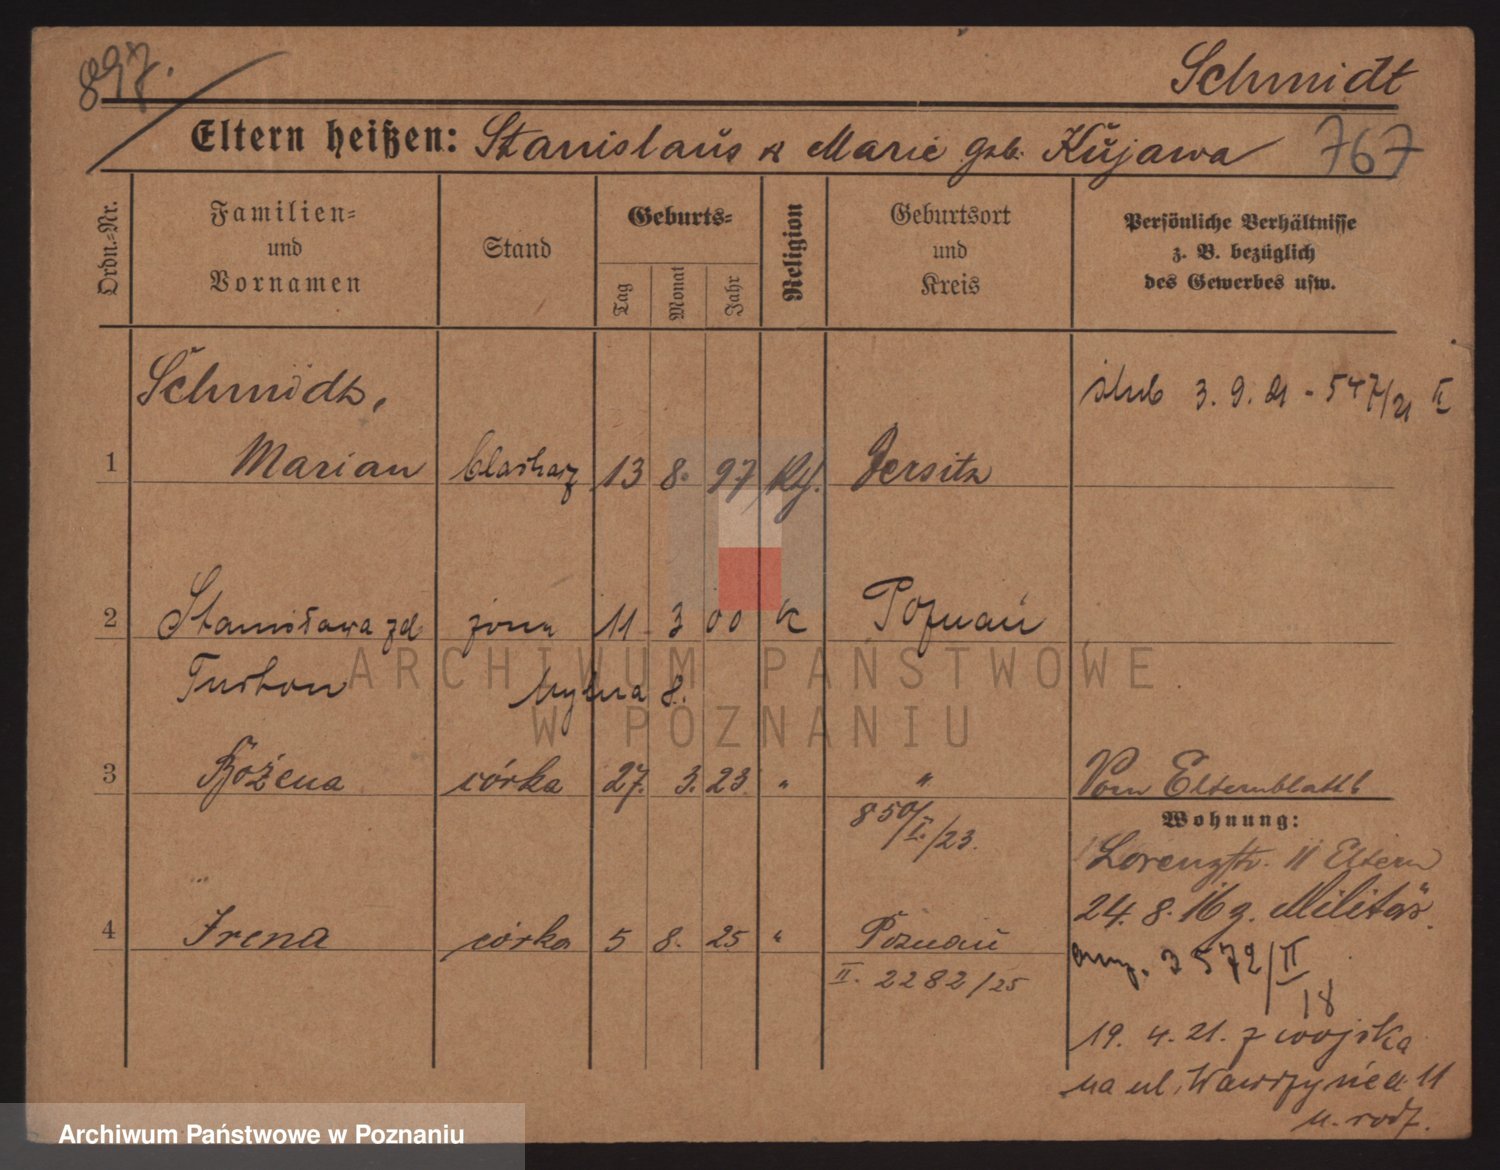 897.
Schmidt
Eltern heißen: Stanislaus u Marie geb. Kujawa 767
Ordn.-Nr.
Familien=
und
Vornamen
Stand
Geburts=
Tag
Monat
Jahr
Religion
Geburtsort
und
Kreis
Persönliche Verhältnisse
z. B. bezüglich
des Gewerbes usw.
Schmidt,
ślub 3. 9. 21 - 547/21 II
1 Marian blacharz 13 8. 97 Kth. Jersitz
2 Stanisława zd żona 11 3 00 K Poznań
8.
3 Bożena córka 27. 3. 23 " "
Vom Elternblatt
850/I./23.
Wohnung:
Lorenzstr. 11 Eltern
24. 8. 16 z. Militär.
4 Irena córka 5 8. 25 " Poznań
3572/II
18
II. 2282/25
19. 4. 21. z wojska
na ul. Wawrzyńca 11
u. rodz.
ARCHIWUM PAŃSTWOWE
W POZNANIU
Archiwum Państwowe w Poznaniu